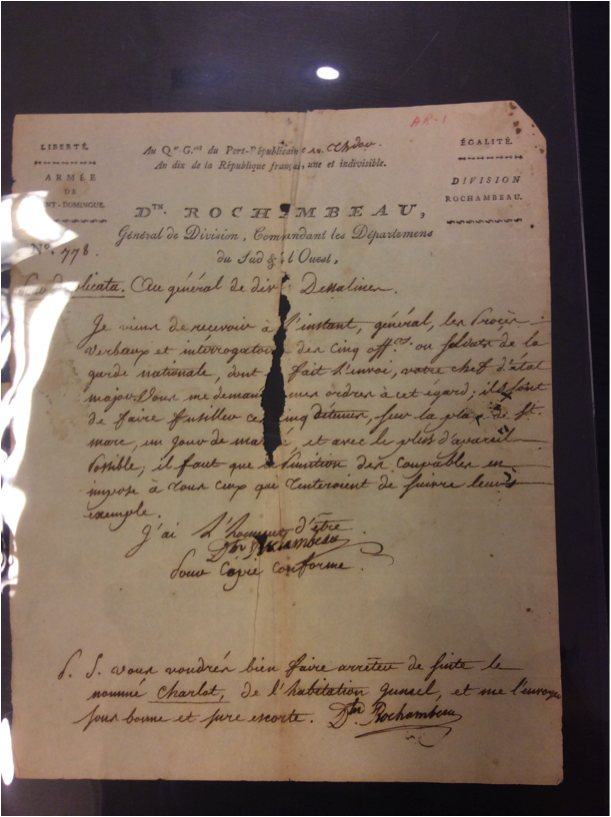 AR-1
LIBERTÉ.
ARMÉE
DE
NT-DOMINGUE.
Au Qer. Gal. du Port-Républicain
An dix de la République française, une et indivisible.
ÉGALITÉ.
DIVISION
ROCHAMBEAU.
Dtn. ROCHAMBEAU,
Général de Division, Commandant les Départemens
du Sud & l'Ouest,
No. 778.
Duplicata. Au général de divon Dessalines.
Je viens de recevoir à l'instant, général, les Procès
verbaux et interrogatoires des cinq offrs. ou soldats de la
garde nationale, dont fait l'envoi, votre chef d'état
major. Vous me demandez mes ordres à cet égard; ils sont
de faire fusiller ces cinq détenus, sur la place de St.
marc, un jour de marché, et avec le plus d'appareil
possible; il faut que la Punition des coupables en
impose à tous ceux qui tenteroient de suivre leurs
exemple.
J'ai l'honneur d'être
Dtn Rochambeau
pour Copie conforme.
P. S. vous voudrés bien faire arrêter de suite le
nommé Charlot, de l'habitation et me l'envoyer
sous bonne et sure escorte. Dtn Rochambeau